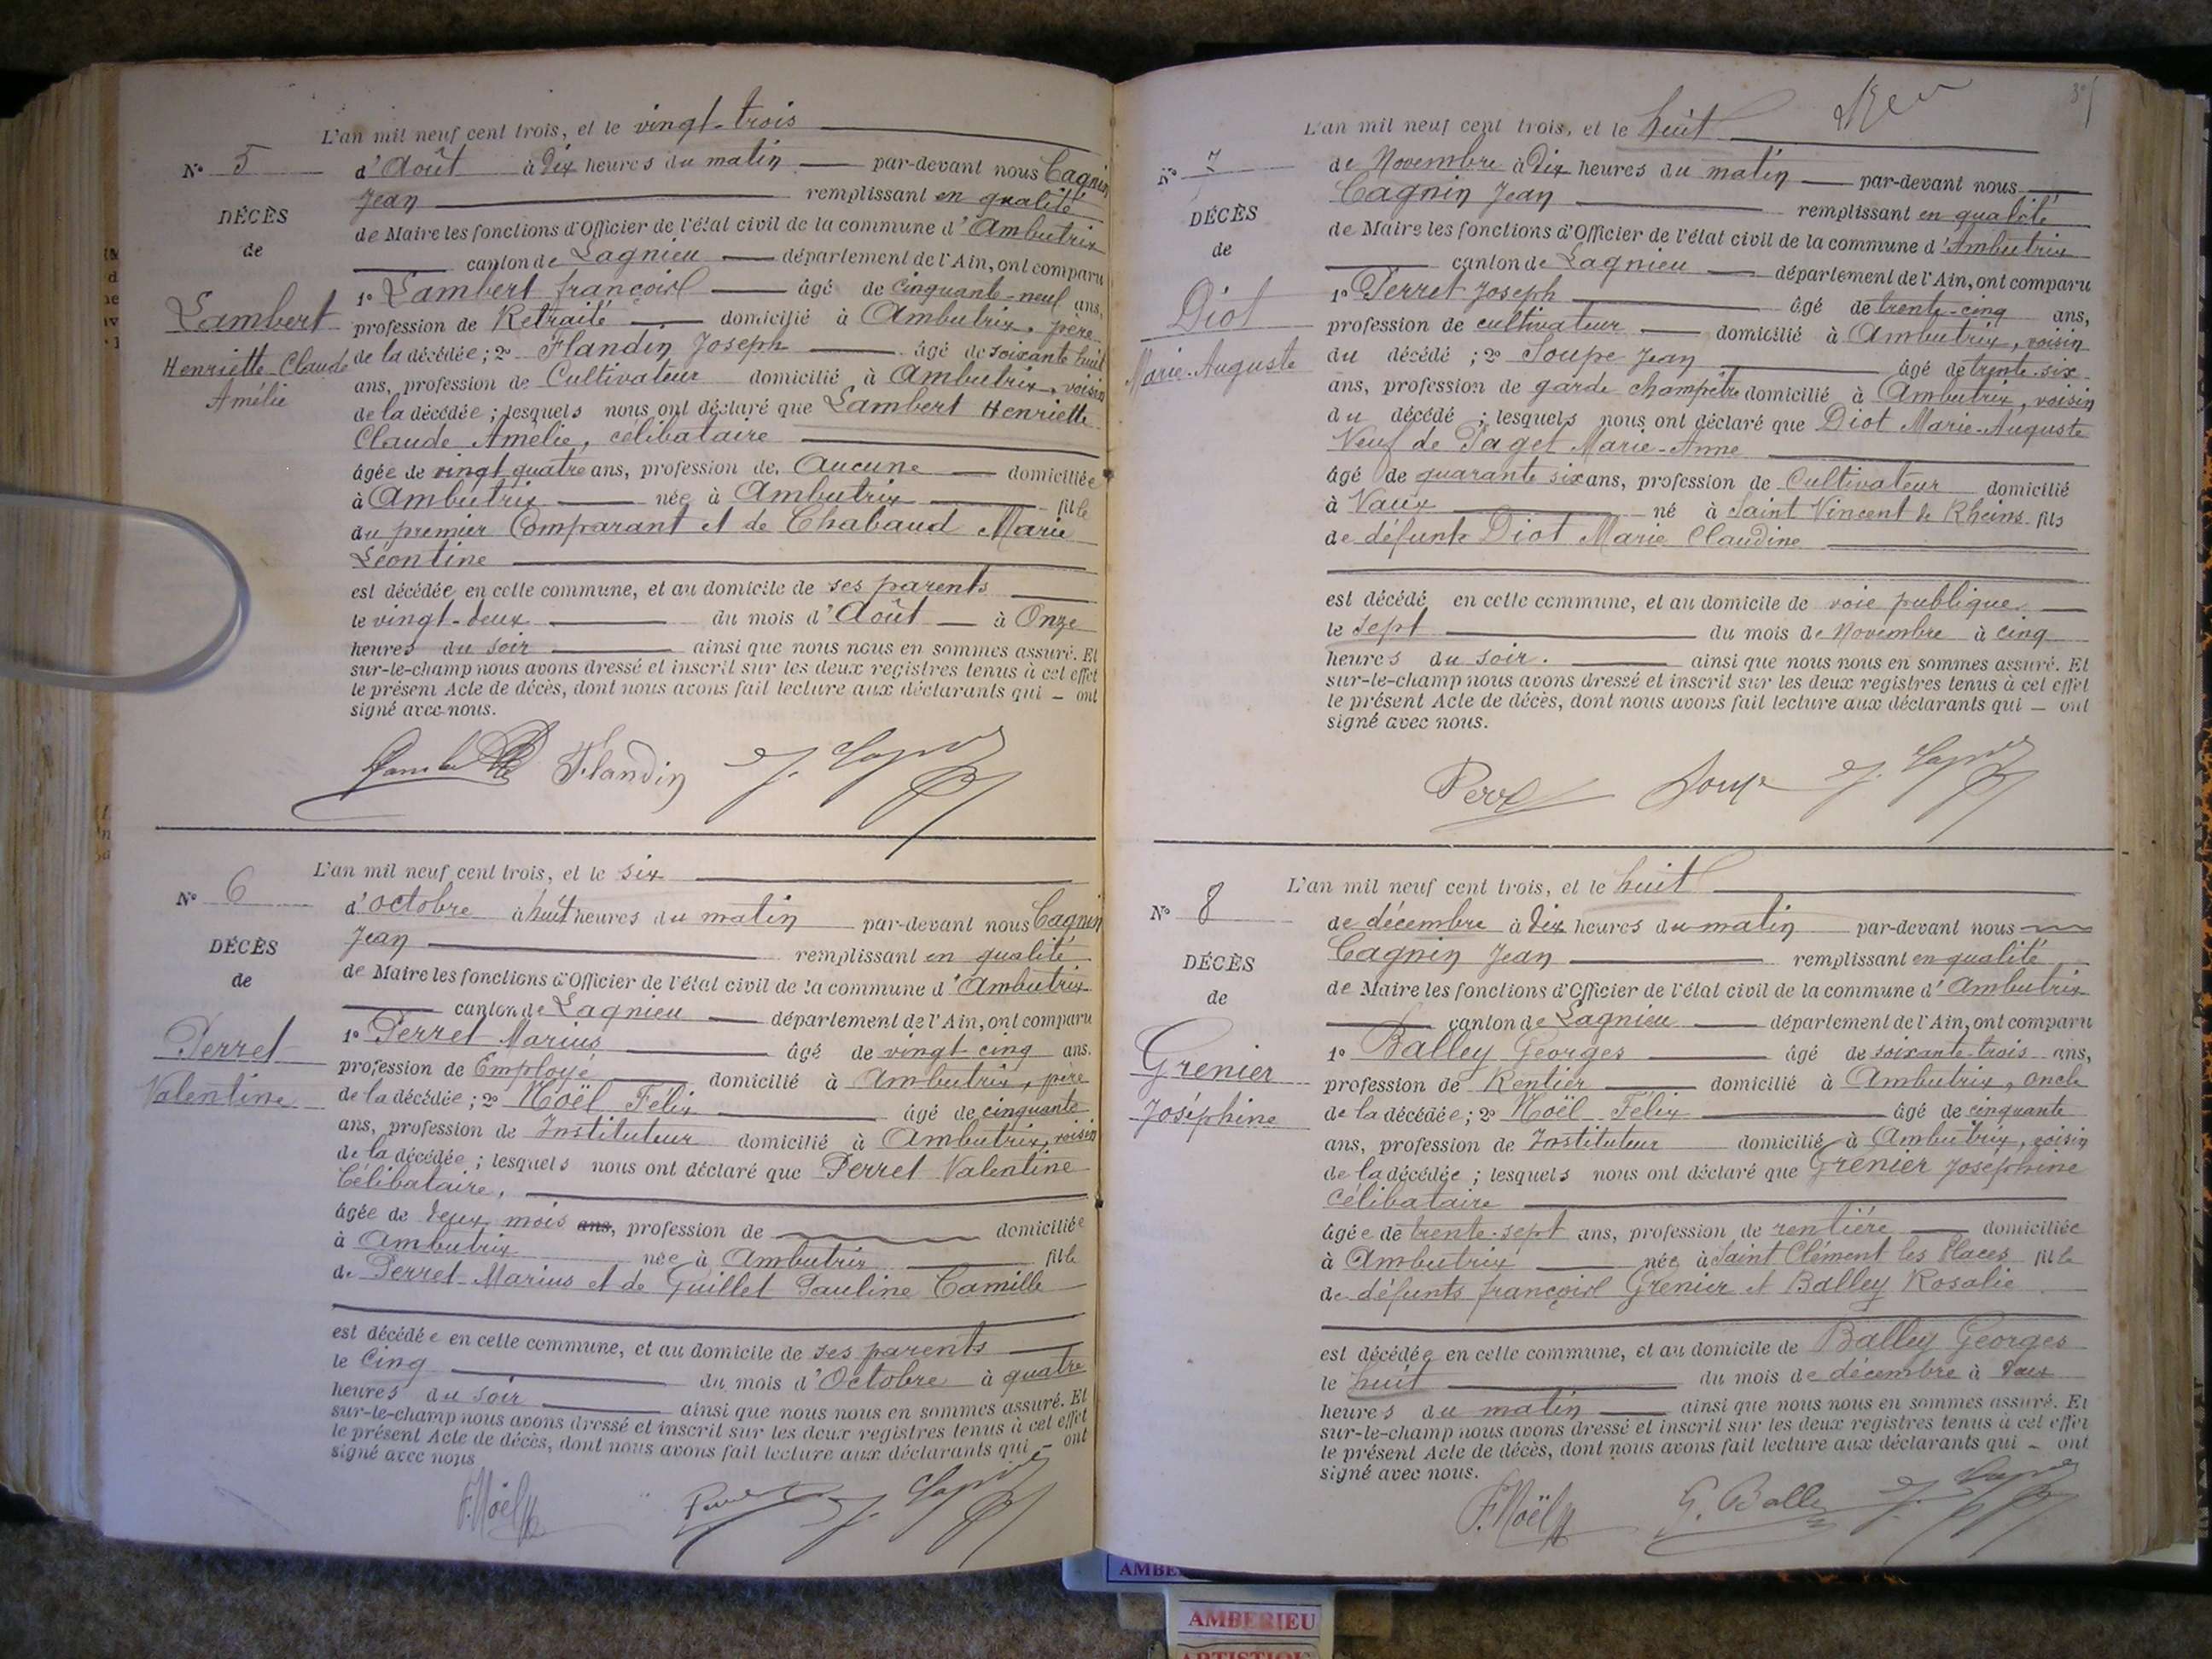 L'an mil neuf cent trois, et le vingt-trois
N° 5
d'Août à Dix heures du matin par-devant nous Cagnin
Jean remplissant en qualité
DÉCÈS
de Maire les fonctions d'Officier de l'état civil de la commune d'Ambutrix
de
canton de Lagnieu département de l'Ain, ont comparu
1° Lambert françois âgé de Cinquante-neuf ans,
Lambert
profession de Retraité domicilié à Ambutrix, père
Henriette Claude
de la décédée; 2° Flandin Joseph âgé de soixante huit
Amélie
ans, profession de Cultivateur domicilié à Ambutrix, voisin
de la décédée; lesquels nous ont déclaré que Lambert Henriette
Claude Amélie, célibataire
âgée de vingt quatre ans, profession de Aucune domiciliée
à Ambutrix née à Ambutrix fille
du premier Comparant et de Chabaud Marie
Léontine
est décédée en cette commune, et au domicile de ses parents
le vingt-deux du mois d'Août à Onze
heures du soir ainsi que nous nous en sommes assuré. Et
sur-le-champ nous avons dressé et inscrit sur les deux registres tenus à cet effet
le présent Acte de décès, dont nous avons fait lecture aux déclarants qui – ont
signé avec nous.
Flandin
L'an mil neuf cent trois, et le six
N° 6
d'octobre à huit heures du matin par-devant nous Cagnin
Jean remplissant en qualité
DÉCÈS
de Maire les fonctions d'Officier de l'état civil de la commune d'Ambutrix
de
canton de Lagnieu département de l'Ain, ont comparu
1° Perret Marius âgé de vingt cinq ans.
Perret
profession de Employé domicilié à Ambutrix, père
Valentine
de la décédée; 2° Noël Félix âgé de cinquante
ans, profession de Instituteur domicilié à Ambutrix, voisin
de la décédée; lesquels nous ont déclaré que Perret Valentine
Célibataire,
âgée de deux mois ans, profession de domiciliée
à Ambutrix née à Ambutrix fille
de Perret Marius et de Guillet Pauline Camille
est décédée en cette commune, et au domicile de ses parents
le Cinq du mois d'Octobre à quatre
heures du soir ainsi que nous nous en sommes assuré. Et
sur-le-champ nous avons dressé et inscrit sur les deux registres tenus à cet effet
le présent Acte de décès, dont nous avons fait lecture aux déclarants qui – ont
signé avec nous
F. Noël
L'an mil neuf cent trois, et le huit
N° 7
de Novembre à Dix heures du matin par-devant nous
Cagnin Jean remplissant en qualité
DÉCÈS
de Maire les fonctions d'Officier de l'état civil de la commune d'Ambutrix
de
canton de Lagnieu département de l'Ain, ont comparu
1° Perret Joseph âgé de trente-cinq ans,
Diot
profession de cultivateur domicilié à Ambutrix, voisin
Marie-Auguste
du décédé; 2° Soupe Jean âgé de trente-six
ans, profession de garde champêtre domicilié à Ambutrix, voisin
du décédé; lesquels nous ont déclaré que Diot Marie-Auguste
Veuf de Paget Marie-Anne
âgé de quarante six ans, profession de Cultivateur domicilié
à Vaux né à Saint Vincent de Rheins fils
de défunte Diot Marie Claudine
est décédé en cette commune, et au domicile de voie publique
le sept du mois de Novembre à cinq
heures du soir. ainsi que nous nous en sommes assuré. Et
sur-le-champ nous avons dressé et inscrit sur les deux registres tenus à cet effet
le présent Acte de décès, dont nous avons fait lecture aux déclarants qui – ont
signé avec nous.
Soupe
L'an mil neuf cent trois, et le huit
N° 8
de décembre à Dix heures du matin par-devant nous
Cagnin Jean remplissant en qualité
DÉCÈS
de Maire les fonctions d'Officier de l'état civil de la commune d'Ambutrix
de
canton de Lagnieu département de l'Ain, ont comparu
1° Balley Georges âgé de soixante-trois ans,
Grenier
profession de Rentier domicilié à Ambutrix, oncle
Joséphine
de la décédée; 2° Noël Félix âgé de cinquante
ans, profession de Instituteur domicilié à Ambutrix, voisin
de la décédée; lesquels nous ont déclaré que Grenier Joséphine
célibataire
âgée de trente-sept ans, profession de rentière domiciliée
à Ambutrix née à Saint Clément les Places fille
de défunts françois Grenier et Balley Rosalie
est décédée en cette commune, et au domicile de Balley Georges
le huit du mois de décembre à deux
heures du matin ainsi que nous nous en sommes assuré. Et
sur-le-champ nous avons dressé et inscrit sur les deux registres tenus à cet effet
le présent Acte de décès, dont nous avons fait lecture aux déclarants qui – ont
signé avec nous.
F. Noël G. Balley
AMBERIEU